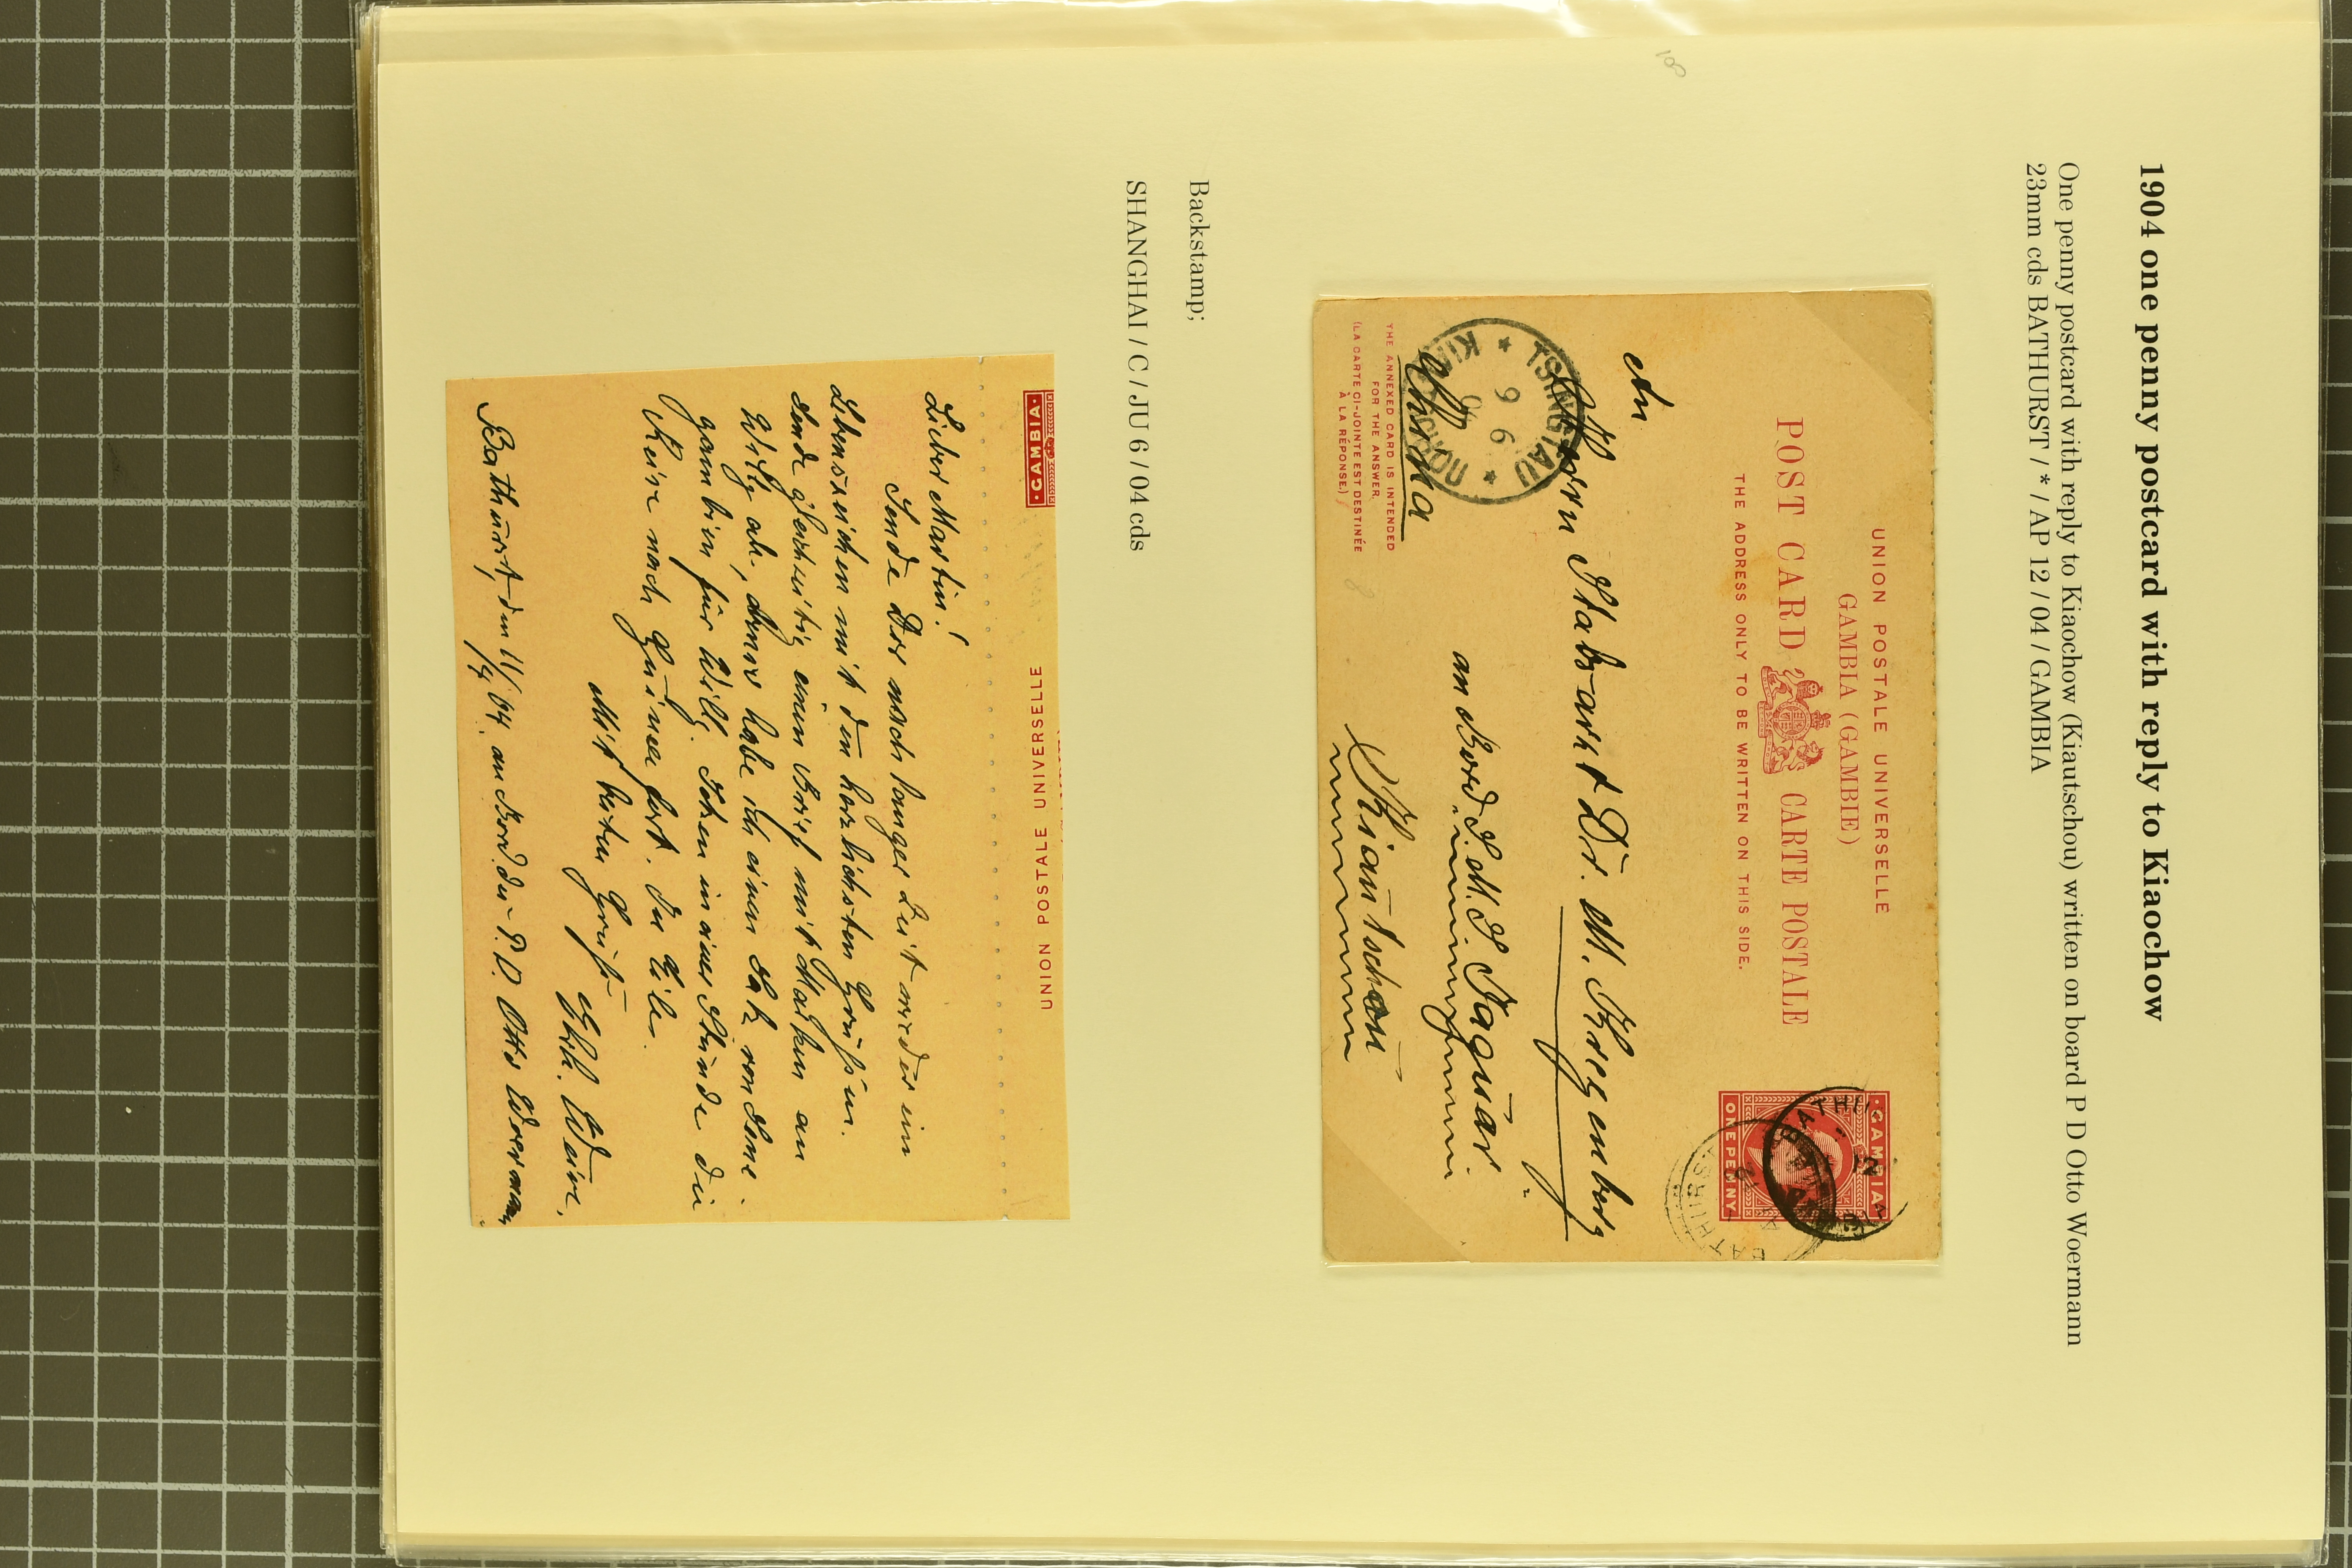 1904 one penny postcard with reply to Kiaochow
One penny postcard with reply to Kiaochow (Kiautschou) written on board P D Otto Woermann
23mm cds BATHURST / * / AP 12 / 04 / GAMBIA
UNION POSTALE UNIVERSELLE
GAMBIA (GAMBIE)
POST CARD CARTE POSTALE
THE ADDRESS ONLY TO BE WRITTEN ON THIS SIDE.
·GAMBIA·
ONE PENNY
BATHURST
BATHURST
An
Herrn Stabsarzt Dr. M. Kregenberg
an Bord S.M.S. Jaguar.
Kiautschou
China
TSINGTAU
9 6
KIAUTSCHOU
THE ANNEXED CARD IS INTENDED
FOR THE ANSWER.
(LA CARTE CI-JOINTE EST DESTINÉE
À LA RÉPONSE.)
Backstamp;
SHANGHAI / C / JU 6 / 04 cds
·GAMBIA·
UNION POSTALE UNIVERSELLE
Lieber Martin!
Sende Dir nach langer Zeit wieder ein
Lebenszeichen mit den herzlichsten Grüßen.
Sende gleichzeitig einen Brief mit Marken an
Willy ab, ferner habe ich einen Satz von Sene-
gambien für Willy. Setzen in einer Stunde die
Reise nach Guinea fort. In Eile.
Mit besten Gruß
Bathurst, den 11/4 04. an Bord des P.D. Otto Woermann